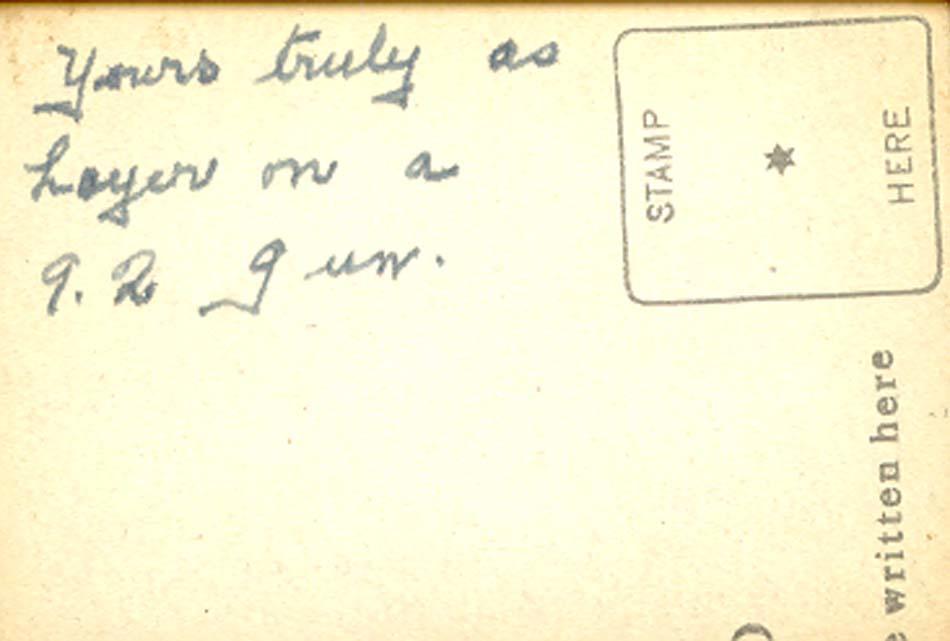 Yours truly as
Layer on a
9.2 gun.
STAMP
HERE
written here